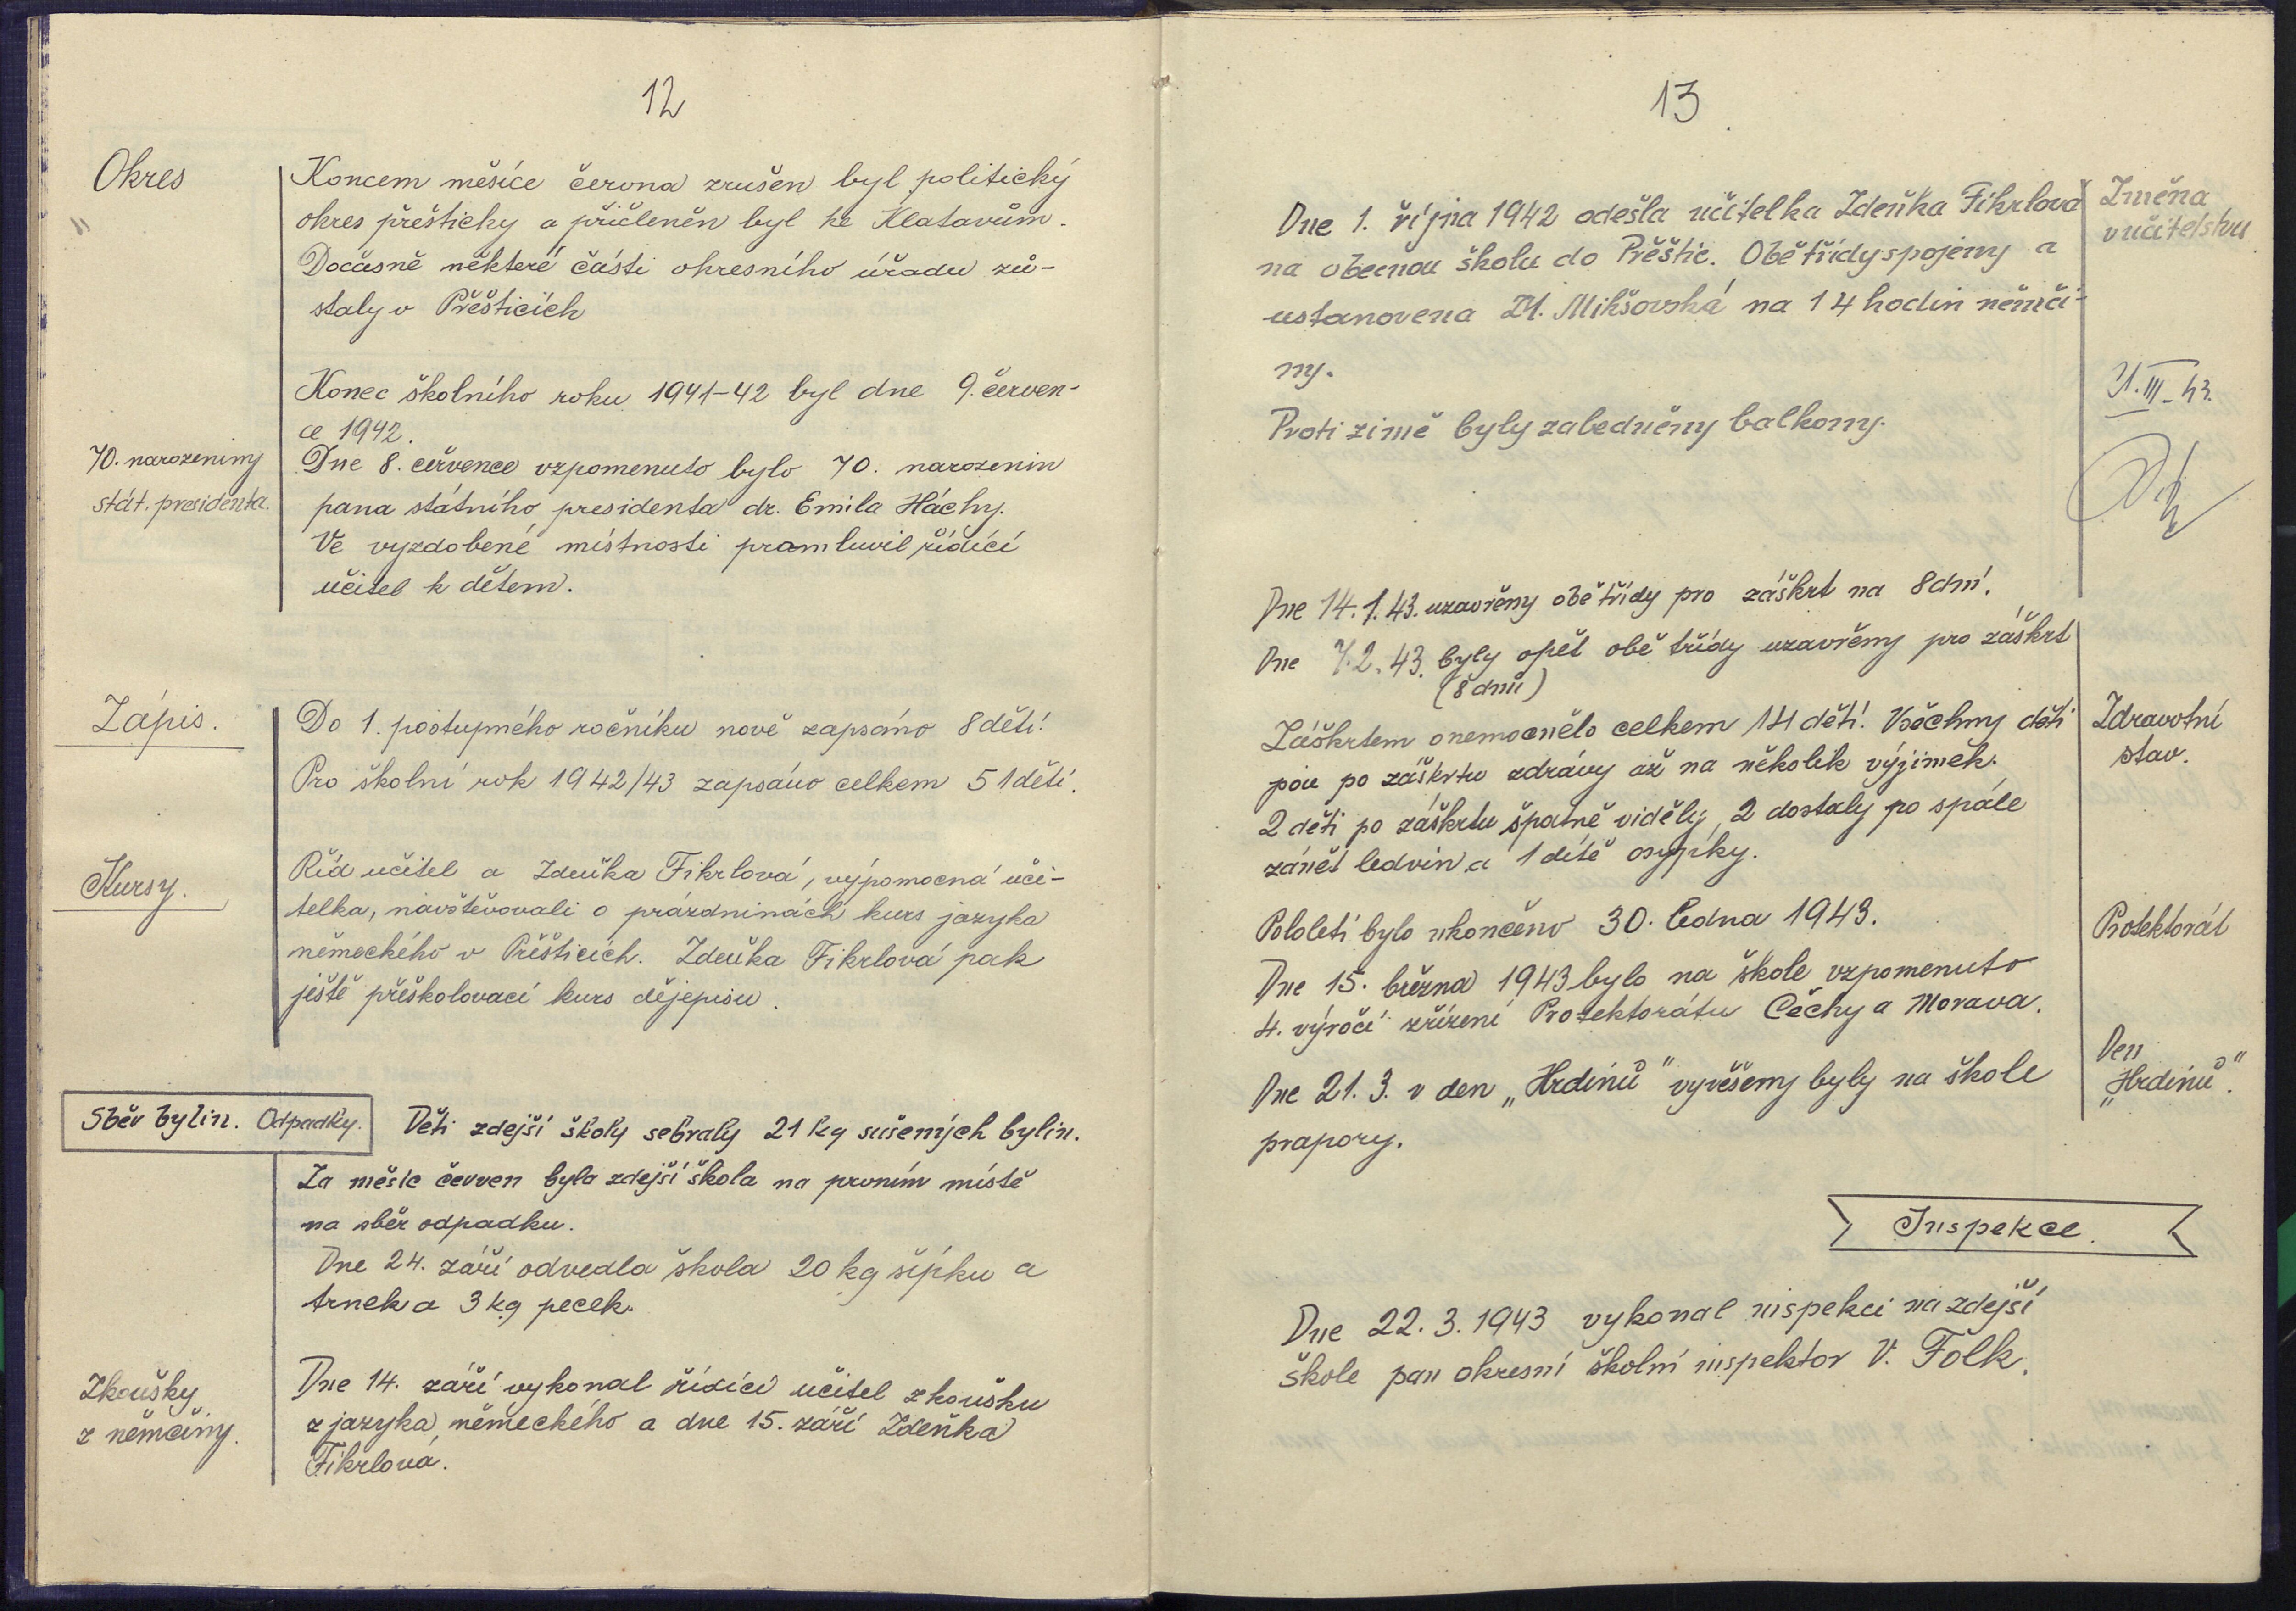 12
Okres
Koncem měsíce června zrušen byl politický
okres přeštický a přičleněn byl ke Klatovům.
Dočasně některé části okresního úřadu zů-
staly v Přešticích
Konec školního roku 1941-42 byl dne 9. červen-
ce 1942.
70. narozeniny
stát. presidenta.
Dne 8. července vzpomenuto bylo 70. narozenin
pana státního presidenta dr. Emila Háchy.
Ve vyzdobené místnosti promluvil řídící
učitel k dětem.
Zápis.
Do 1. postupného ročníku nově zapsáno 8 dětí.
Pro školní rok 1942/43 zapsáno celkem 51 dětí.
Kursy.
Říd učitel a Zdeňka Fikrlová, výpomocná uči-
telka, navštěvovali o prázdninách kurs jazyka
německého v Přešticích. Zdeňka Fikrlová pak
ještě přeškolovací kurs dějepisu.
Sběr bylin. Odpadky.
Děti zdejší školy sebraly 21 kg sušených bylin.
Za měsíc červen byla zdejší škola na prvním místě
na sběr odpadku.
Dne 24. září odvedla škola 20 kg šípku a
trnek a 3 kg pecek.
Zkoušky
z němčiny.
Dne 14. září vykonal řídící učitel zkoušku
z jazyka německého a dne 15. září Zdeňka
Fikrlová.
13
Dne 1. října 1942 odešla učitelka Zdeňka Fikrlová
na obecnou školu do Přeštic. Obě třídy spojeny a
ustanovena M. Mikšovská na 14 hodin němči-
ny.
Změna
v učitelstvu
Proti zimě byly zabedněny balkony.
21.III-43.
Dne 14.1.43. uzavřeny obě třídy pro záškrt na 8 dní.
Dne 7.2.43. byly opět obě třídy uzavřeny pro záškrt
(8 dnů)
Záškrtem onemocnělo celkem 14 dětí. Všechny děti
jsou po záškrtu zdrávy až na několik výjimek.
2 děti po záškrtu špatně viděly, 2 dostaly po spále
zánět ledvin a 1 dítě osypky.
Zdravotní
stav.
Pololetí bylo ukončeno 30. ledna 1943.
Dne 15. března 1943 bylo na škole vzpomenuto
4. výročí zřízení Protektorátu Čechy a Morava.
Protektorát
Dne 21. 3. v den „Hrdinů" vyvěšeny byly na škole
prapory.
Den
„Hrdinů".
Inspekce.
Dne 22. 3. 1943 vykonal inspekci na zdejší
škole pan okresní školní inspektor V. Folk.